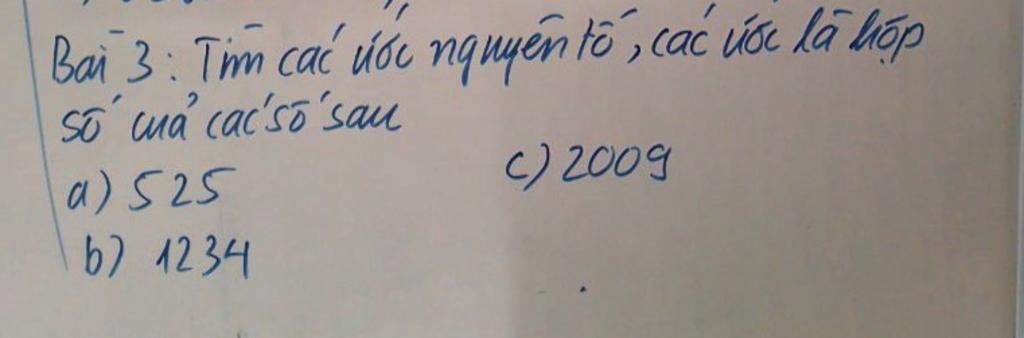 Bài 3: Tìm các ước nguyên tố, các ước là hợp
số của các số sau
a) 525
c) 2009
b) 1234